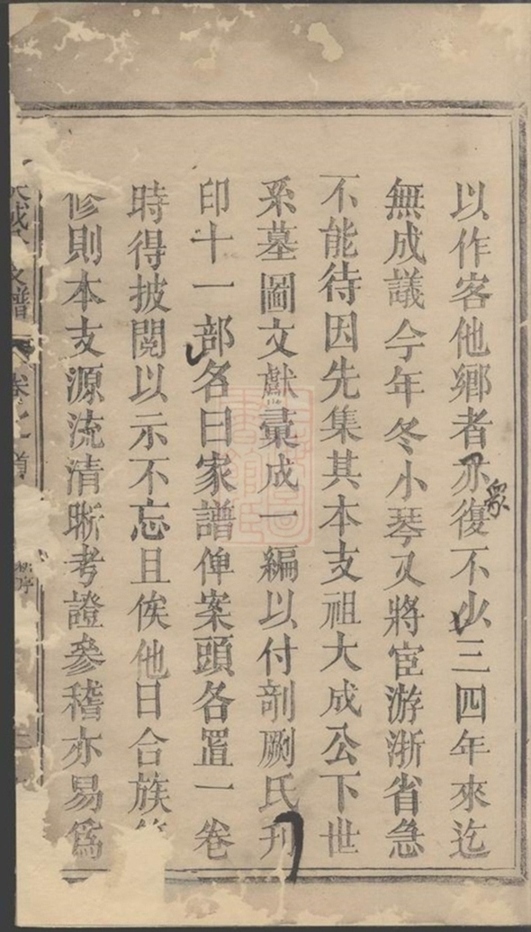 以作客他鄉者亦復不少三四年來迄
衆
無成議今年冬小琴又將宦游浙省急
不能待因先集其本支祖大成公下世
系墓圖文獻彙成一編以付剞劂氏刊
印十一部名曰家譜俾案頭各置一卷
時得披閱以示不忘且俟他日合族
修則本支源流清晰考證參稽亦易爲
支譜 卷之首